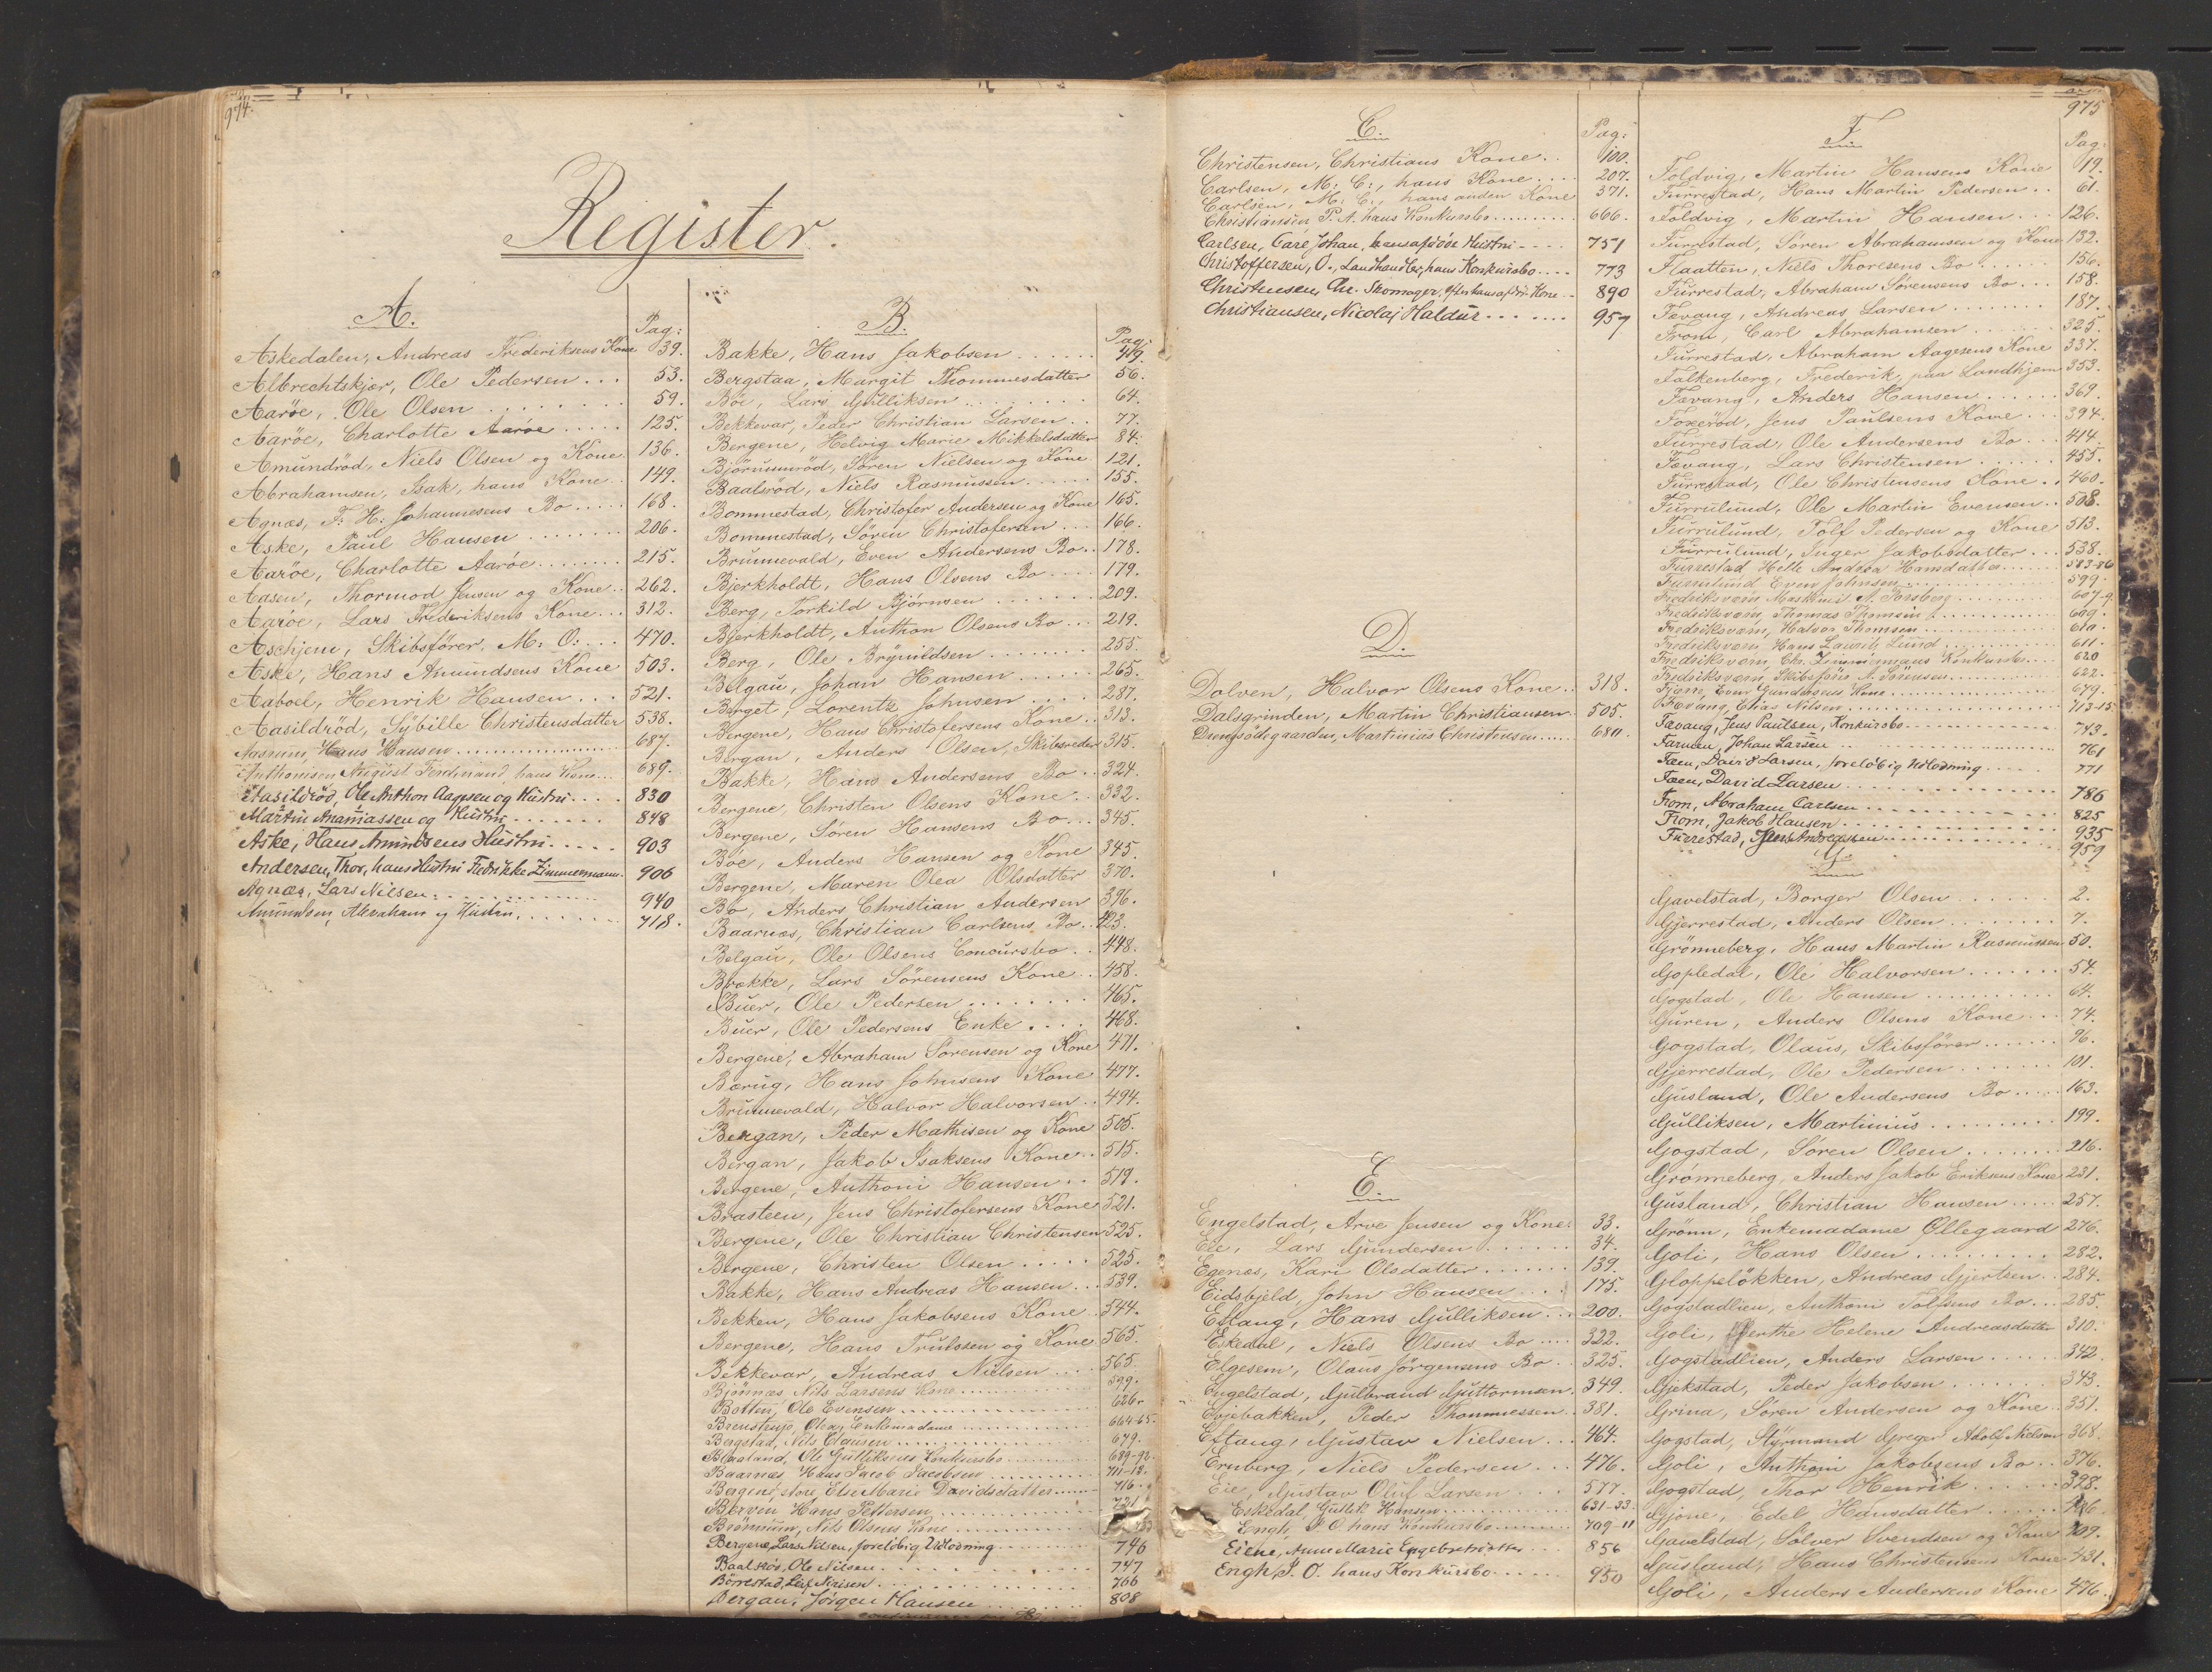 974.
Register.
A.
Pag:
Askedalen, Andreas Frederiksens Kone 39.
Albrechtskjær, Ole Pedersen . . . 53.
Aaröe, Ole Olsen . . . . . . . 59.
Aaröe, Charlotte Aaröe . . . . . 125.
Amundröd, Niels Olsen og Kone 136.
Abrahamsen, Isak, hans Kone . . 149.
Agnæs, F. H. Johannesens Bo . . . . 168.
Aske, Paul Hansen . . . . . . . . 206.
Aaröe, Charlotte Aaröe . . . . . . 215.
Aasen, Thormod Jensen og Kone . . 262.
Aaröe, Lars Frederiksens Kone . . . 312.
Aschjem, Skibsförer, M: O: . . . 470.
Aske, Hans Amundsens Kone 503.
Aaboel, Henrik Hansen . . . 521.
Aasildröd, Sybille Christensdatter 538.
Aasrum, Hans Hansen . . . . . . 687.
Anthonisen August Ferdinand hans Kone . . . 689.
Aasildröd, Ole Anthon Aagesen og Hustru . . . . 830
Martin Ananiassen og Hustru . . . . . . . 848
Aske, Hans Amundsens Hustru . . . . . 903
Andersen, Thor, hans Hustru Fredrikke Zimmermann. 906
Agnæs, Lars Nilsen . . . . . . . . 940
Amundsen, Abraham og Hustru . . . . . . 718.
B.
Pag:
Bakke, Hans Jakobsen . . . . . . 49.
Bergstaa, Margit Thommesdatter 56.
Böe, Lars Gulliksen . . . . . . . 64.
Bekkevar, Peder Christian Larsen . . 77.
Bergene, Helvig Marie Mikkelsdatter 84.
Björnumröd, Sören Nielsen og Kone 121.
Baalsröd, Niels Rasmussen . . . . . 155.
Bommestad, Christofer Andersen og Kone 165.
Bommestad, Sören Christofersen . . . 166.
Brunnevald, Even Andersens Bo . . 178.
Bjerkholdt, Hans Olsens Bo . . . . 179.
Berg, Torkild Björnsen . . . . . . 209.
Bjerkholdt, Anthon Olsens Bo . . . 219.
Berg, Ole Brynildsen . . . . . . . 255.
Belgau, Johan Hansen . . . . . . 265.
Berget, Lorentz Johnsen . . . 287.
Bergene, Hans Christofersens Kone . . 313.
Bergan, Anders Olsen, Skibsreder 315.
Bakke, Hans Andersens Bo . . 324.
Bergene, Christen Olsens Kone . . 332.
Bergene, Sören Hansens Bo . . . 345.
Böe, Anders Hansen og Kone 345.
Bergene, Maren Olea Olsdatter 370.
Bö, Anders Christian Andersen 396.
Baarnæs, Christian Carlsens Bo . . 423.
Belgau, Ole Olsens Concursbo . . 448.
Brække, Lars Sörensens Kone . . 458.
Buer, Ole Pedersen . . . . . . . . 465.
Buer, Ole Pedersens Enke . . . . 468.
Bergene, Abraham Sorensen og Kone 471.
Bærug, Hans Johnsens Kone 477.
Brunnevald, Halvor Halvorsen . . 494.
Bergan, Peder Mathisen og Kone 505.
Bergan, Jakob Isaksens Kone . . 515.
Bergene, Anthoni Hansen . . 519.
Brasteen, Jens Christofersens Kone 521.
Bergene, Ole Christian Christensen 525.
Bergene, Christen Olsen . . . . . 525.
Bakke, Hans Andreas Hansen . . . 539.
Bekken, Hans Jakobsens Kone . . 544.
Bergene, Hans Trulssen og Kone 565.
Bekkevar, Andreas Nielsen . . . . 565.
Björnnæs Nils Larsens Kone . . . . . . 599.
Botten, Ole Evensen . . . . . . . . 626.
Brenstrup, Olea, Enkemadame . . . . . . 664-65.
Bergstad, Nils Clausen . . . . . . 679.
Blaaland, Ole Gulliksens Konkursbo . . . . . 689-92.
Baarnæs Hans Jacob Jacobsen . . . . . . 711-12.
Bergene, store, Else Marie Davidsdatter . . . . . 716.
Berven Hans Pettersen . . . . . . . 721
Brönnum, Nils Olsens Kone . . . . . .
Bergene, Lars Nilsen, foreløbig Udlodning . . . . . 746
Baalsröd, Ole Nilsen . . . . . . . . 747
Börrestad, Leif Nirisen . . . . . . . 766
Bergan, Jörgen Hansen . . . . . . . 808
C.
Pag:
Christensen, Christians Kone . . 100.
Carlsen, M: C:, hans Kone . . . . 207.
Carlsen, M: C:, hans anden Kone 371.
Christiansen P. A. hans Konkursbo . . . . . . . 666.
Carlsen, Carl Johan, hans afdöde Hustru . . . . 751
Christoffersen, O., Landhandler, hans Konkursbo . . . . 773
Christensen, Chr. Skomager, efter hans afdöde Kone . . 890
Christiansen, Nicolaj Haldur . . . . . . . 957
D.
Dolven, Halvor Olsens Kone . . 318.
Dalsgrinden, Martin Christiansen . 505.
Dunsödegaarden, Martinius Christensen . . . . . 680.
E.
Engelstad, Arve Jensen og Kone . 33.
Eie, Lars Gundersen . . . . . . . 34.
Egenæs, Kari Olsdatter . . . . . . . 139.
Eidsbjeld, John Hansen . . . . . 175.
Eftang, Hans Gulliksen . . . 200.
Ekedal, Niels Olsens Bo . . . . 322.
Elgesem, Olaus Jörgensens Bo . . 325.
Engelstad, Gulbrand Guttormsen . 349.
Eviebakken, Peder Thommessen . . 381.
Eftang, Gustav Nielsen . . . 464.
Ernberg, Niels Pedersen . . . 476.
Eie, Gustav Oluf Larsen . . . . 577.
Eskedal Gullik Hansen . . . . . . . 631-33.
Engh, P. O. hans Konkursbo . . . . . . . 709-11
Eiene, Anne Marie Engebretsdatter . . . . 856
Engh, P. O. hans Konkursbo . . . . . . 950
975
F.
Pag:
Foldvig, Martin Hansens Kone 19.
Furrestad, Hans Martin Pedersen . . 61.
Foldvig, Martin Hansen . . . 126.
Furrestad, Sören Abrahamsen og Kone 132.
Flaatten, Niels Thoresens Bo . . . . . 156.
Furrestad, Abraham Sörensens Bo . . . 158.
Fevang, Andreas Larsen . . . . . . . 187.
From, Carl Abrahamsen . . . . . 325.
Furrestad, Abraham Aagesens Kone 337.
Falkenberg, Frederik, paa Landhjem 353.
Fævang, Anders Hansen . . . . . . 369.
Foxeröd, Jens Paulsens Kone . . . 394.
Furrestad, Ole Andersens Bo . . . 414.
Fævang, Lars Christensen . . . . . . 455.
Furrestad, Ole Christensens Kone . . 460.
Furrulund, Ole Martin Evensen . . 508.
Furrulund, Tolf Pedersen og Kone 513.
Furrulund, Inger Jakobsdatter . . . 538.
Furrestad Helle Andrea Hansdatter . . . . . . 583-86
Furrulund Even Johnsen . . . . . . . 599.
Fredriksværn Maskinist A. Porsberg . . . . . . . 607-9.
Fredriksværn, Thomas Thomsen . . . . . . . 609.
Fredriksværn, Halvor Thomsen . . . . . . . 610.
Fredriksværn, Hans Lauritz Lund . . . . . 611.
Fredriksværn, Chr. Zimmermanns Konkursbo . . . . 620
Fredriksværn, Skibsförer A. Sörensen . . . . . . 622.
Fjære, Even Gundersens Kone . . . . . . . . 679.
Fævang, Elias Nilsen . . . . . . . . 713-15
Fævang, Jens Paulsen, Konkursbo . . . . . . . . 743.
Farmen, Johan Larsen . . . . . . . 761
Faen, David Larsen, foreløbig Udlodning . . . . . 771
Faen, David Larsen . . . . . . . . . 786
From, Abraham Carlsen . . . . . . . 825
From, Jakob Hansen . . . . . . . . 935
Furrestad, Jens Andreassen . . . . . . . 959
G.
Gavelstad, Borger Olsen . . . . . . 2.
Gjerrestad, Anders Olsen . . . . . . . 7.
Grönneberg, Hans Martin Rasmussen 50.
Gopledal, Ole Halvorsen . . . . . . . 54.
Gogstad, Ole Hansen . . . . . . . . . 64.
Guren, Anders Olsens Kone . . . 74.
Gogstad, Olaus, Skibsförer . . . . . . 96.
Gjerrestad, Ole Pedersen . . . . . . . 101.
Gusland, Ole Andersens Bo . . . . . 163.
Gulliksen, Martinius . . . . . . . . . 199.
Gogstad, Sören Olsen . . . . . . . 216.
Grönneberg, Anders Jakob Eriksens Kone 231.
Gusland, Christian Hansen . . . . . 257.
Grönn, Enkemadame Ollegaard 276.
Goli, Hans Olsen . . . . . . . . . . 282.
Gloppelökken, Andreas Gjertsen . . 284.
Gogstadlien, Anthoni Tolfsens Bo . . . 285.
Goli, Berthe Helene Andreasdatter 310.
Gogstadlien, Anders Larsen . . . . . 342
Gjekstad, Peder Jakobsen . . . . . . . 343.
Grina, Sören Andersen og Kone . . 351.
Gogstad, Styrmand Greger Adolf Nielsen 368.
Goli, Anthoni Jakobsens Bo . . . 376.
Gogstad, Thor Henrik . . . . . . . 398.
Gjone, Edel Hansdatter . . . . . .
Gavelstad, Sölver Svendsen og Kone 409.
Gusland, Hans Christensens Kone 431.
Goli, Anders Andersens Kone 476.